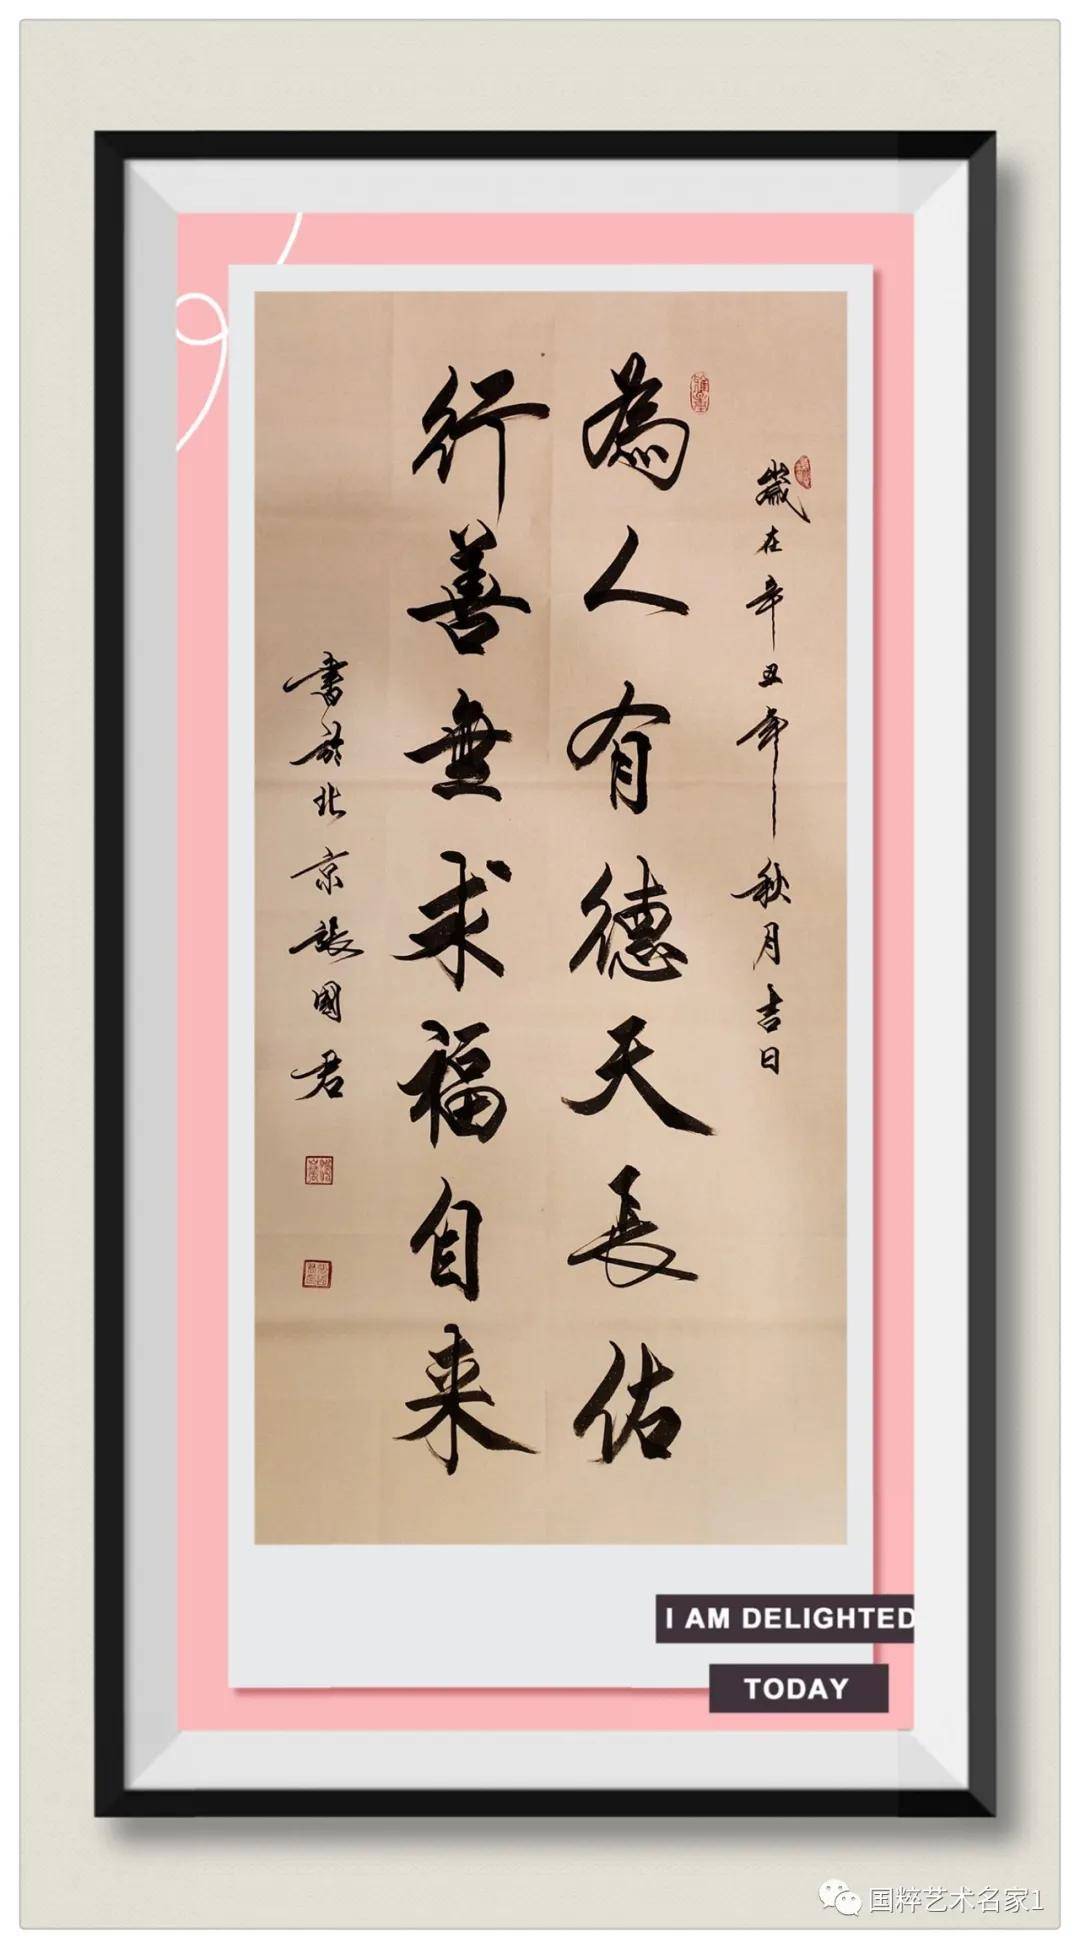 歲在辛丑年秋月吉日
為人有德天長佑
行善無求福自来
書於北京張國君
I AM DELIGHTED
TODAY
国粹艺术名家1